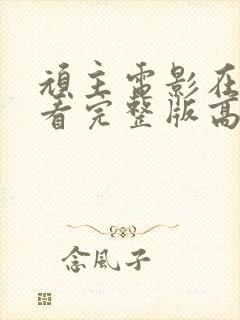 頑主電影在
看完整版高
念風子